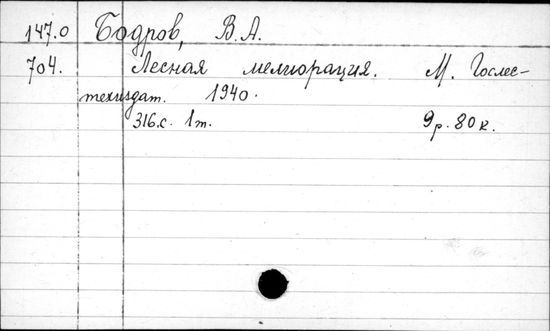 147.0 Бодров, В.А.
704. Лесная мелиорация. М. Гослес-
техиздат. 1940.
316.с. 1т. 9р. 80к.